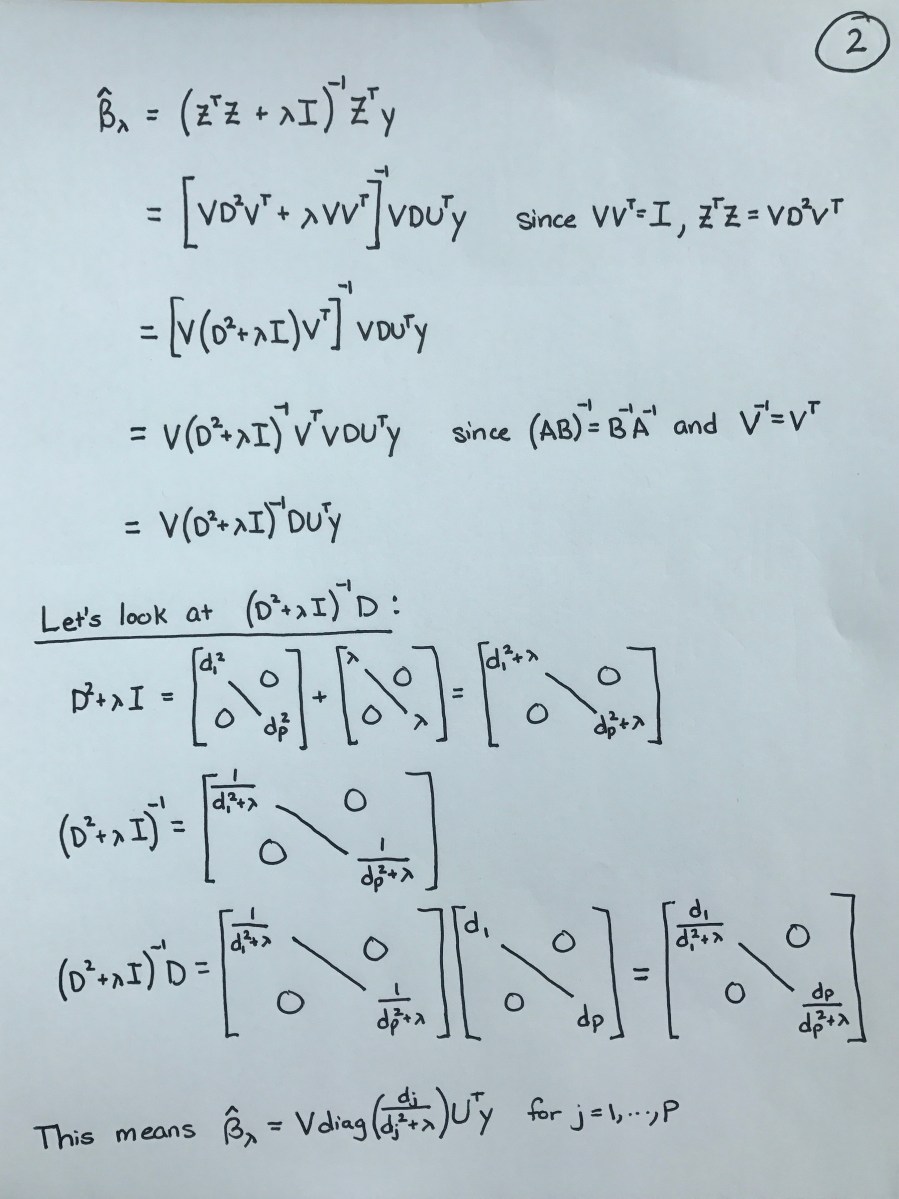 2
β̂_λ = (ZᵀZ + λI)⁻¹Zᵀy
= [VD²Vᵀ + λVVᵀ]⁻¹VDUᵀy since VVᵀ=I, ZᵀZ = VD²Vᵀ
= [V(D²+λI)Vᵀ]⁻¹ VDUᵀy
= V(D²+λI)⁻¹VᵀVDUᵀy since (AB)⁻¹=B⁻¹A⁻¹ and V⁻¹=Vᵀ
= V(D²+λI)⁻¹DUᵀy
Let's look at (D²+λI)⁻¹D :
D²+λI = [d₁² \ d_p², 0 0] + [λ \ λ, 0 0] = [d₁²+λ \ d_p²+λ, 0 0]
(D²+λI)⁻¹ = [1/(d₁²+λ) \ 1/(d_p²+λ), 0 0]
(D²+λI)⁻¹D = [1/(d₁²+λ) \ 1/(d_p²+λ), 0 0] [d₁ \ d_p, 0 0] = [d₁/(d₁²+λ) \ d_p/(d_p²+λ), 0 0]
This means β̂_λ = V diag(d_j/(d_j²+λ))Uᵀy for j=1,...,p